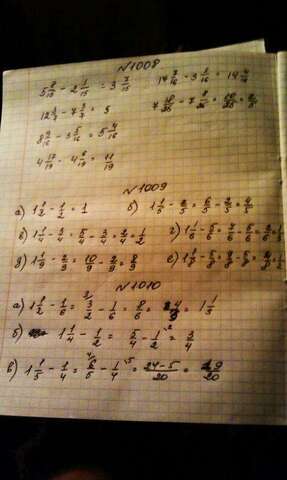 №1008
5 8/15 - 2 1/15 = 3 7/15
17 7/16 - 3 3/16 = 14 4/16
12 3/7 - 7 3/7 = 5
8 9/16 - 3 5/16 = 5 4/16
4 17/19 - 4 6/19 = 11/19
№1009
а) 1 1/2 - 1/2 = 1
б) 1 1/5 - 2/5 = 6/5 - 2/5 = 4/5
в) 1 1/4 - 3/4 = 5/4 - 3/4 = 2/4 = 1/2
г) 1 1/6 - 5/6 = 7/6 - 5/6 = 2/6 = 1/3
д) 1 1/9 - 2/9 = 10/9 - 2/9 = 8/9
№1010
а) 1 1/2 - 1/6 = 3/2 - 1/6 = 8/6 = 1 1/3
б) 1 1/4 - 1/2 = 5/4 - 1/2 = 3/4
в) 1 1/5 - 1/4 = 6/5 - 1/4 = 24-5/20 = 19/20